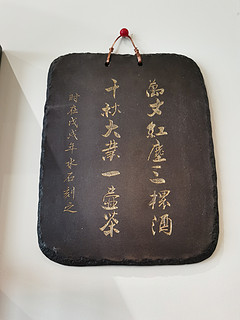 萬丈紅塵三桮酒
千秋大業一壺茶
時在戊戌年水石刻之